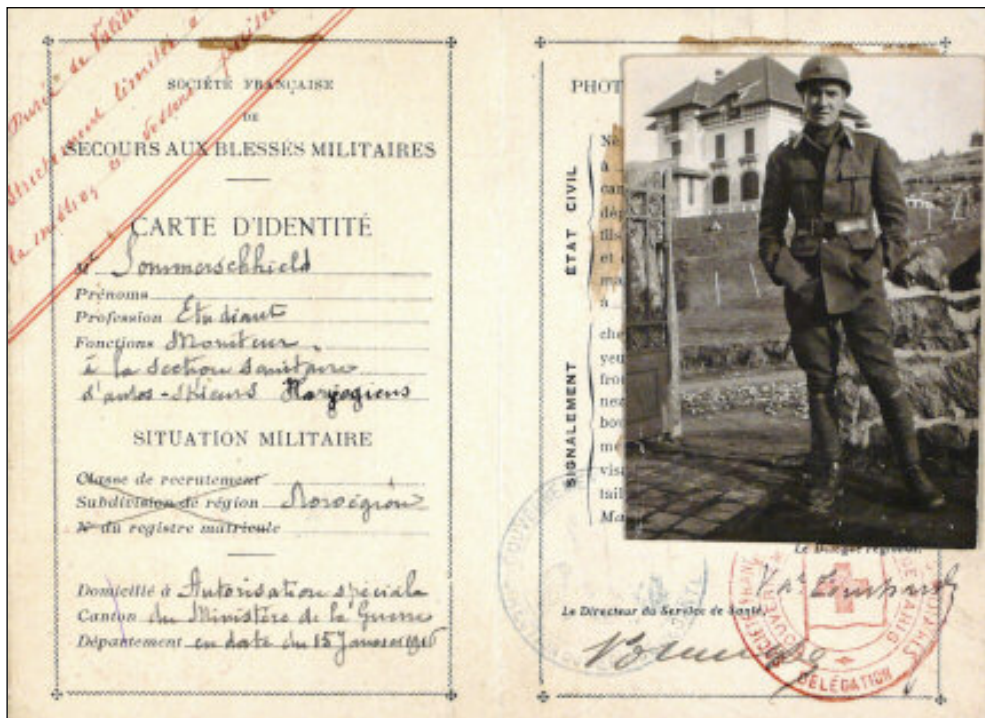 Durée de Validité
Strictement limitée à
la mission
SOCIÉTÉ FRANÇAISE
DE
SECOURS AUX BLESSÉS MILITAIRES
CARTE D'IDENTITÉ
Mr Sommerschield
Prénoms
Profession Etudiant
Fonctions Moniteur
à la Section Sanitaire
d'autos-Skieurs Norvégiens
SITUATION MILITAIRE
Classe de recrutement
Subdivision de région Norvégien
No du registre matricule
Domicilié à Autorisation spéciale
Canton du Ministère de la Guerre
Département en date du 15 Janvier 1916
PHOT
ÉTAT CIVIL
à
dé
fils
et
à
SIGNALEMENT
che
yeu
fro
nez
bou
me
vis
tail
Ma
Le Délégué régional,
Le Directeur du Service de Santé,
DÉLÉGATION